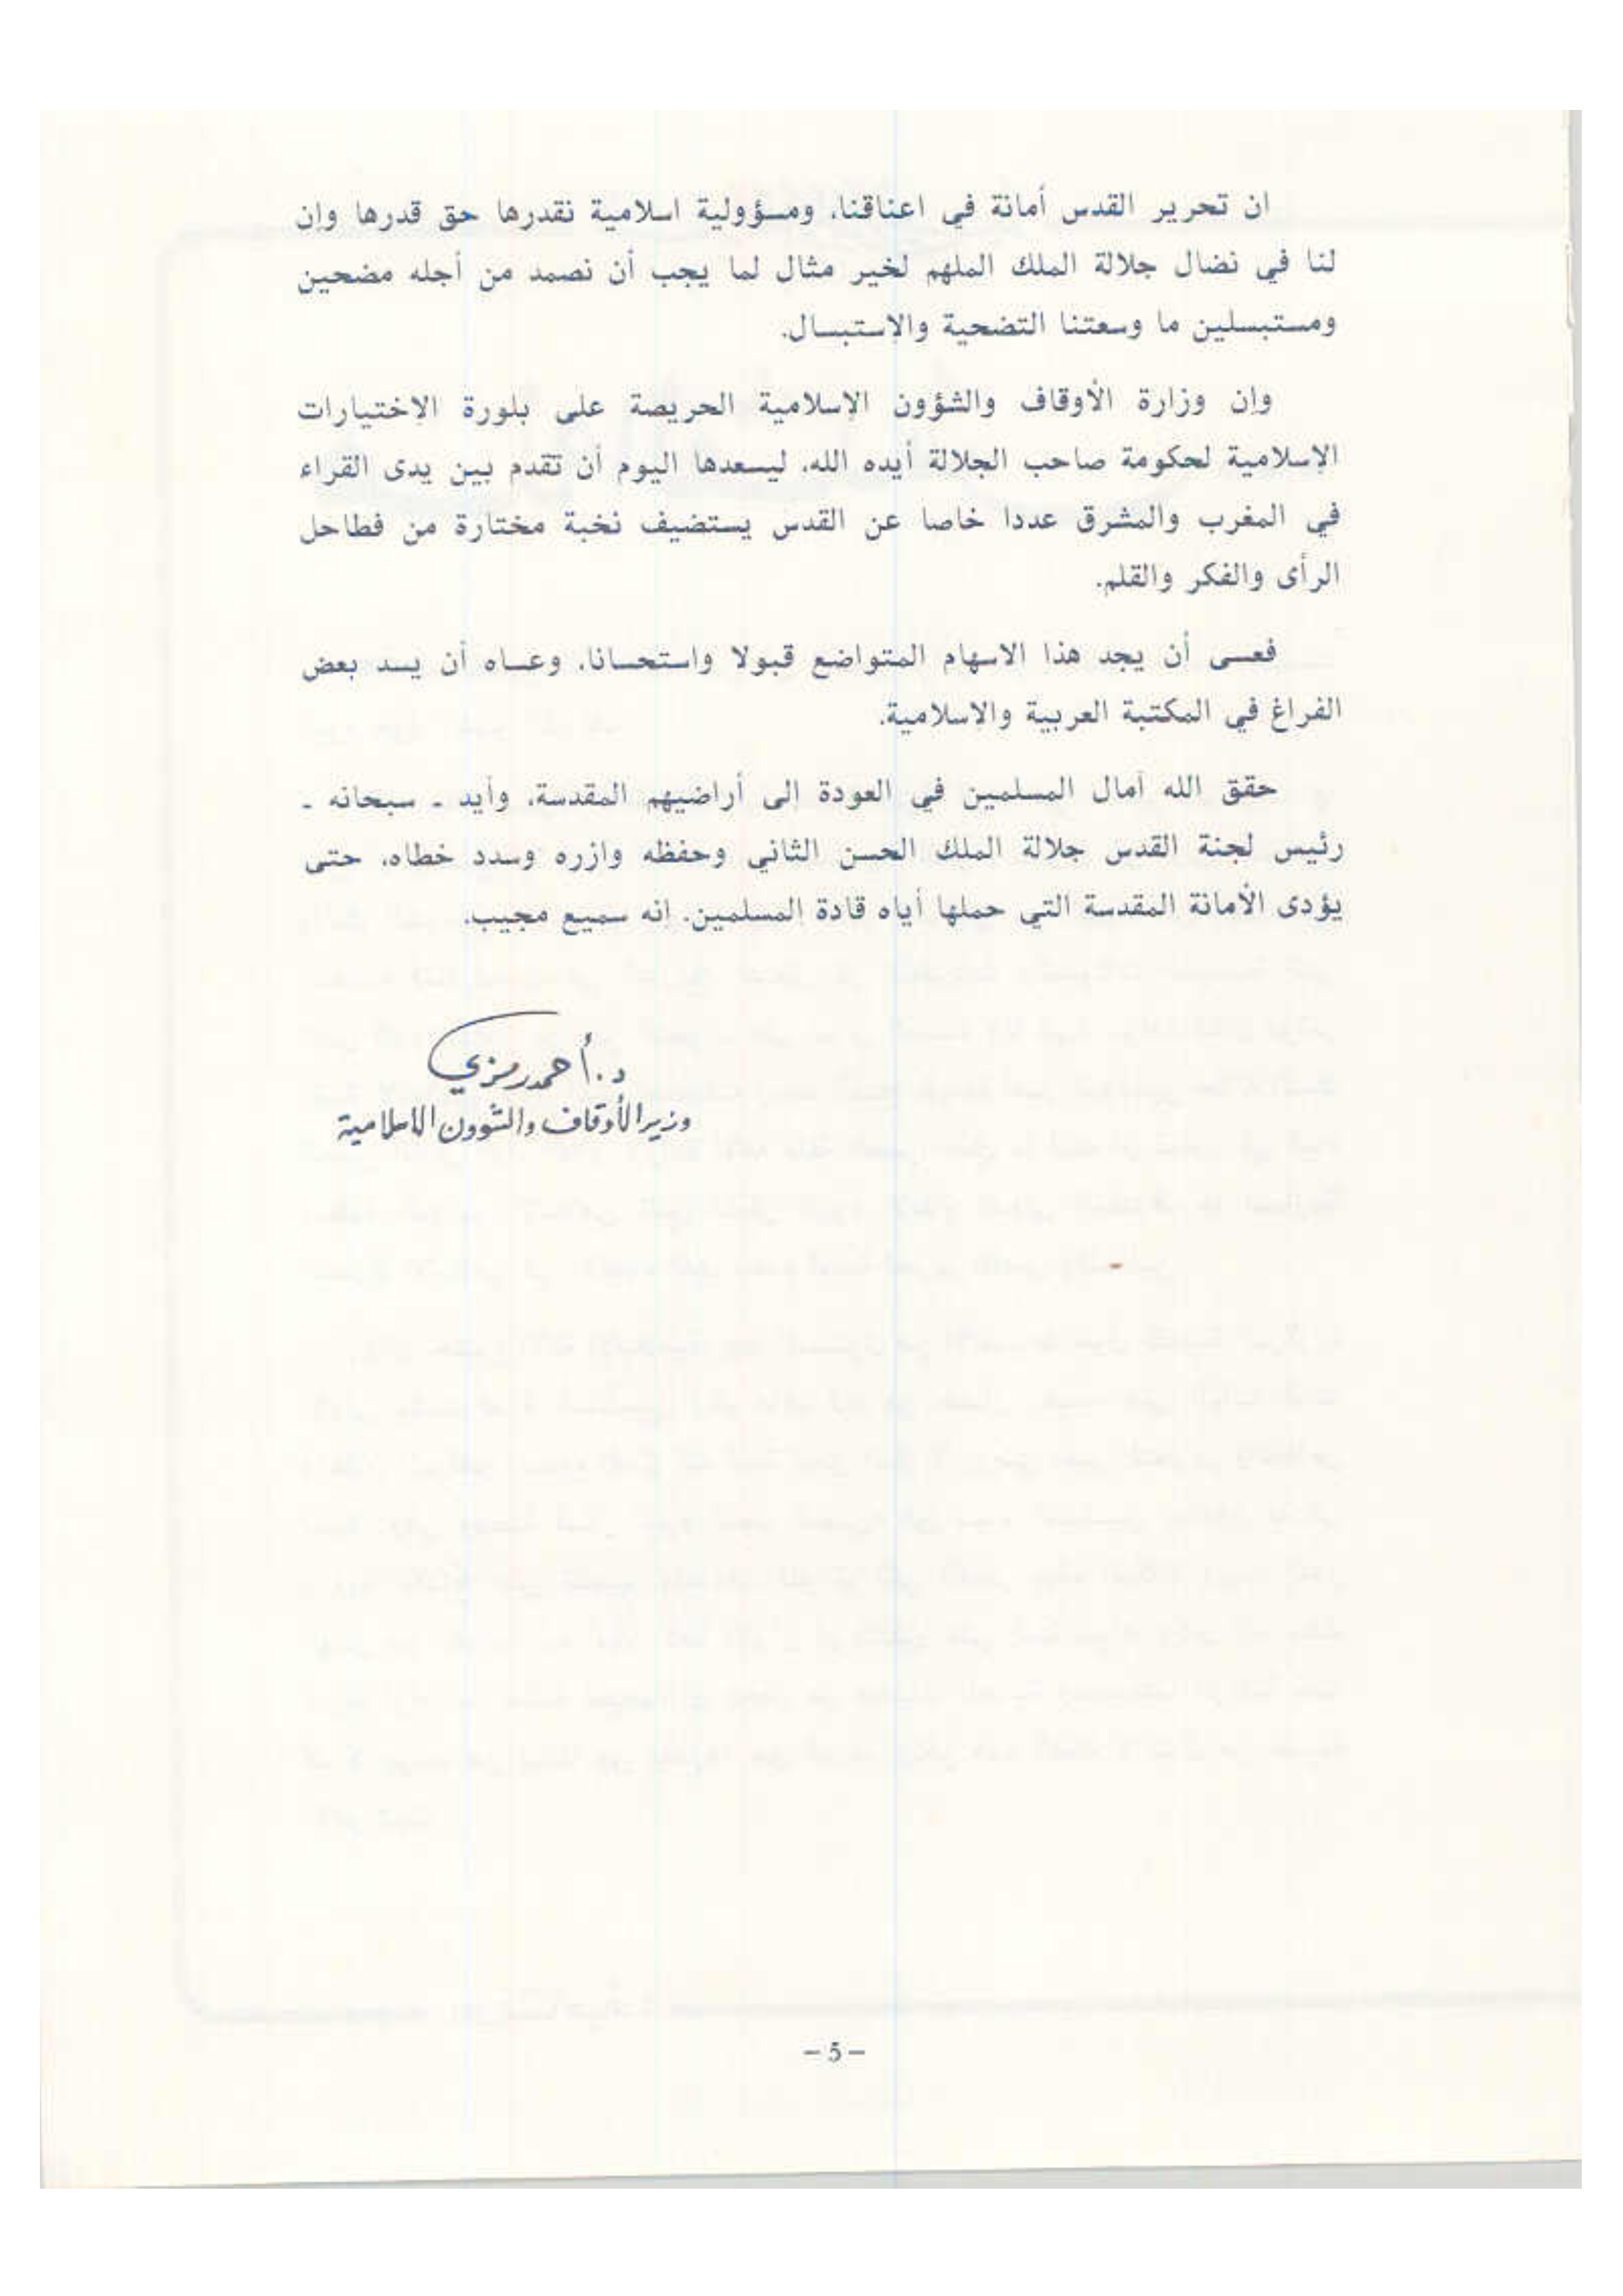 ان تحرير القدس أمانة في اعناقنا، ومسؤولية اسلامية نقدرها حق قدرها وإن
لنا في نضال جلالة الملك الملهم لخير مثال لما يجب أن نصمد من أجله مضحين
ومستبسلين ما وسعتنا التضحية والاستبسال.
وإن وزارة الأوقاف والشؤون الإسلامية الحريصة على بلورة الاختيارات
الإسلامية لحكومة صاحب الجلالة أيده الله، ليسعدها اليوم أن تقدم بين يدى القراء
في المغرب والمشرق عددا خاصا عن القدس يستضيف نخبة مختارة من فطاحل
الرأى والفكر والقلم.
فعسى أن يجد هذا الاسهام المتواضع قبولا واستحسانا، وعساه أن يسد بعض
الفراغ في المكتبة العربية والاسلامية.
حقق الله آمال المسلمين في العودة الى أراضيهم المقدسة، وأيد ـ سبحانه ـ
رئيس لجنة القدس جلالة الملك الحسن الثاني وحفظه وازره وسدد خطاه، حتى
يؤدى الأمانة المقدسة التي حملها أياه قادة المسلمين. إنه سميع مجيب.
د. أحمد رمزي
وزير الأوقاف والشؤون الاسلامية
– 5 –